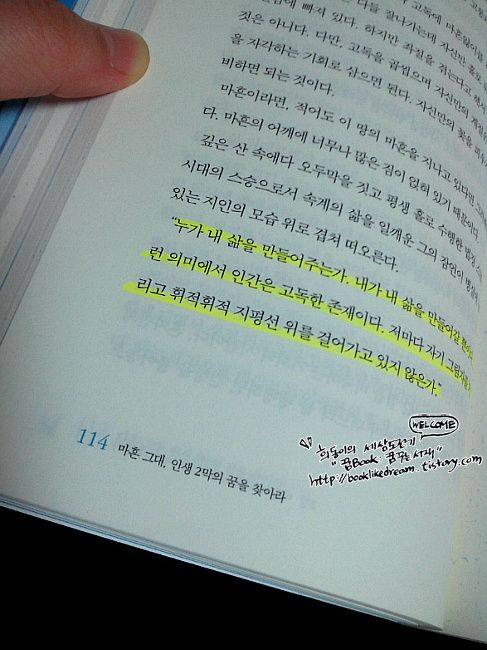 고독에 마흔앓이를
빠져 있다. 하지만 좌절을 쥐는다고 해서
것은 아니다. 다만, 고독을 곱씹으며 자신만의
을 자각하는 기회로 삼으면 된다. 자신만의 꽃을 피우
비하면 되는 것이다.
마흔이라면, 적어도 이 땅의 마흔을 지나고 있다면,
다. 마흔의 어깨에 너무나 많은 짐이 얹혀 있기 때문이다.
깊은 산 속에다 오두막을 짓고 평생 홀로 수행한 법정
시대의 스승으로서 속계의 삶을 일깨운 그의 잠언이
있는 지인의 모습 위로 겹쳐 떠오른다.
"누가 내 삶을 만들어주는가. 내가 내 삶을 만들어갈 뿐이다.
런 의미에서 인간은 고독한 존재이다. 저마다 자기 그림자를
리고 휘적휘적 지평선 위를 걸어가고 있지 않은가."
114 마흔 그대, 인생 2막의 꿈을 찾아라
WELCOME
희동이의 세상도전기
"꿈Book: 꿈꾸는 서재"
http://booklikedream.tistory.com